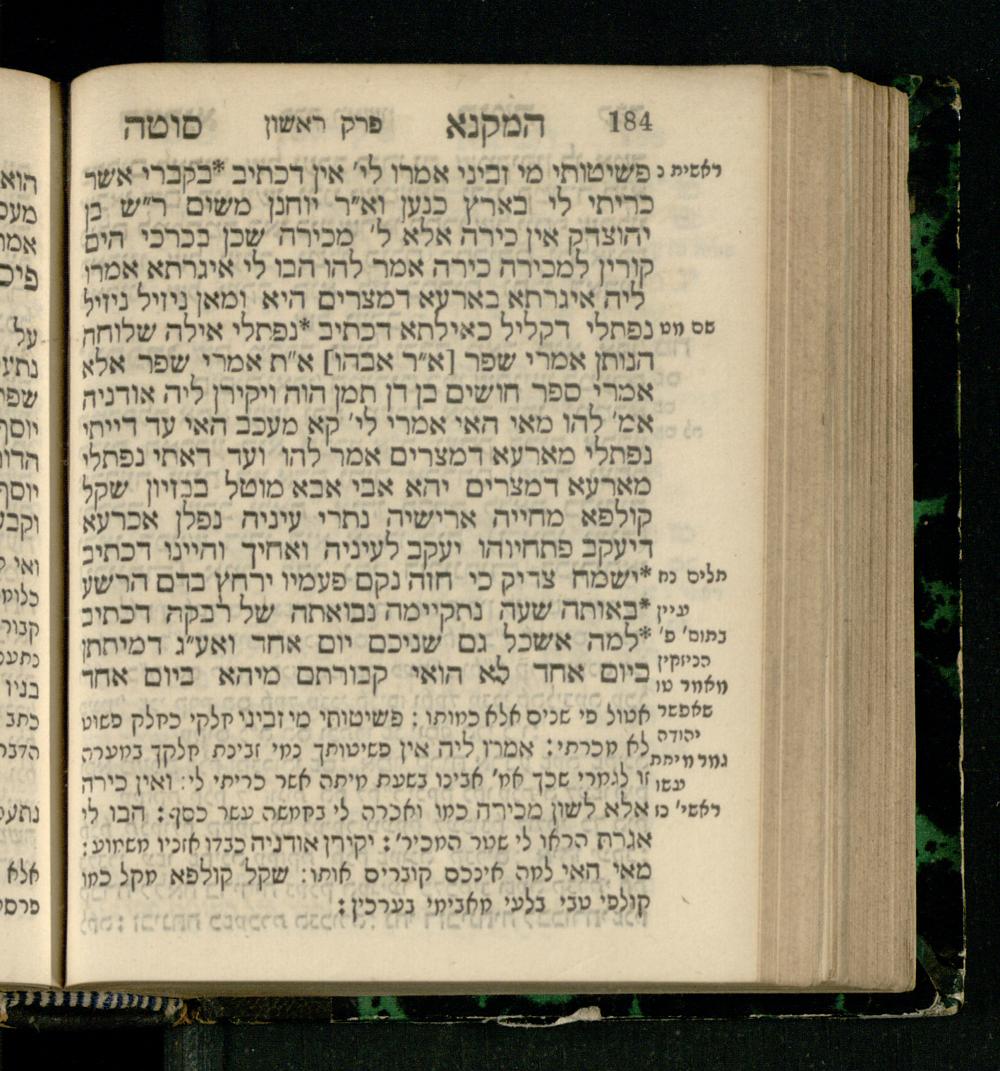 184 המקנא פרק ראשון סוטה
ראשית נ פשיטותי מי זביני אמרו לי׳ אין דכתיב *בקברי אשר
כריתי לי בארץ כנען וא״ר יוחנן משום ר״ש בן
יהוצדק אין כירה אלא ל׳ מכירה שכן בכרכי הים
קורין למכירה כירה אמר להו הבו לי איגרתא אמרו
ליה איגרתא בארעא דמצרים היא ומאן ניזיל ניזיל
שם מט נפתלי דקליל כאילתא דכתיב *נפתלי אילה שלוחה
הנותן אמרי שפר [א״ר אבהו] א״ת אמרי שפר אלא
אמרי ספר חושים בן דן תמן הוה ויקירן ליה אודניה
אמ׳ להו מאי האי אמרי לי׳ קא מעכב האי עד דייתי
נפתלי מארעא דמצרים אמר להו ועד דאתי נפתלי
מארעא דמצרים יהא אבי אבא מוטל בבזיון שקל
קולפא מחייה ארישיה נתרי עיניה נפלן אכרעא
דיעקב פתחיוהו יעקב לעיניה ואחיך והיינו דכתיב
תלים נח *ישמח צדיק כי חזה נקם פעמיו ירחץ בדם הרשע
עיין *באותה שעה נתקיימה נבואתה של רבקה דכתיב
בתוס׳ פ׳ *למה אשכל גם שניכם יום אחד ואע״ג דמיתתן
הניזקין ביום אחד לא הואי קבורתם מיהא ביום אחד
מאמר טו
שאפשר אטול פי שנים אלא כמותו : פשיטותי מי זביני חלקי כחלק פשוט
יהודה לא מכרתי: אמרו ליה אין פשיטותך נמי זבינת חלקך במערה
גמר מיתת זו לגמרי שכך אמ׳ אבינו בשעת מיתה אשר כריתי לי: ואין כירה
עשו
ראשי׳ נו אלא לשון מכירה כמו ואכרה לי בחמשה עשר כסף: הבו לי
אגרת הראו לי שטר המכיר׳: יקירן אודניה כבדו אזניו משמוע:
מאי האי למה אינכם קוברים אותו: שקל קולפא מקל כמו
קולפי טבי בלעי מאבימי בערכין: